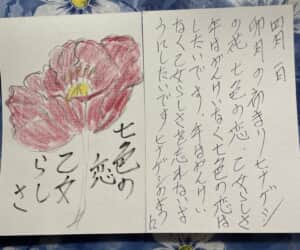 四月一日
卯月の初まりヒナゲシ
の花 七色の恋、乙女らしさ
年はかんけいなく七色の恋は
したいです、年はかんけい
なく乙女らしさを忘れないよ
うにしたいですヒナゲシのように
七色の
恋
乙女
らしさ